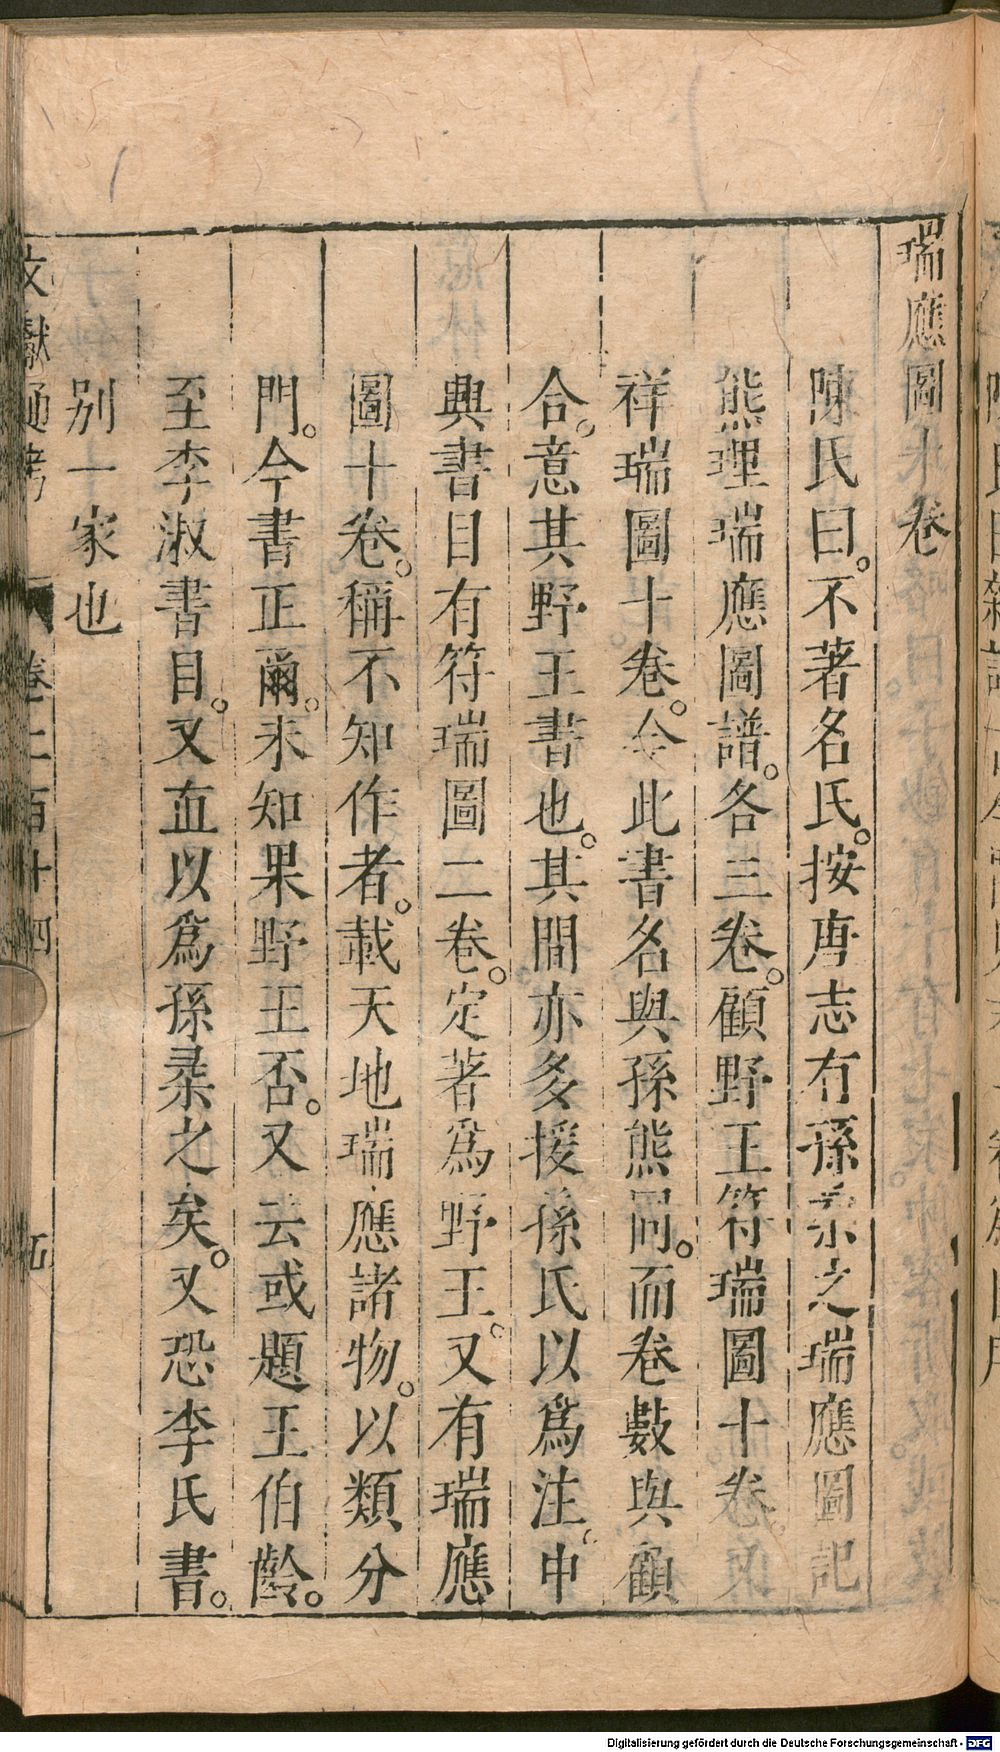 瑞應圖十卷
陳氏曰。不著名氏。按唐志有孫柔之瑞應圖記
熊理瑞應圖譜。各三卷。顧野王符瑞圖十卷又
祥瑞圖十卷。今此書名與孫熊同。而卷數與顧
合。意其野王書也。其間亦多援孫氏以爲注。中
興書目有符瑞圖二卷。定著爲野王。又有瑞應
圖十卷。稱不知作者。載天地瑞應諸物。以類分
門。今書正爾。未知果野王否。又云或題王伯齡。
至李淑書目。又直以爲孫柔之矣。又恐李氏書。
别一家也
文獻通考 卷二百十四 五
Digitalisierung gefördert durch die Deutsche Forschungsgemeinschaft - DFG